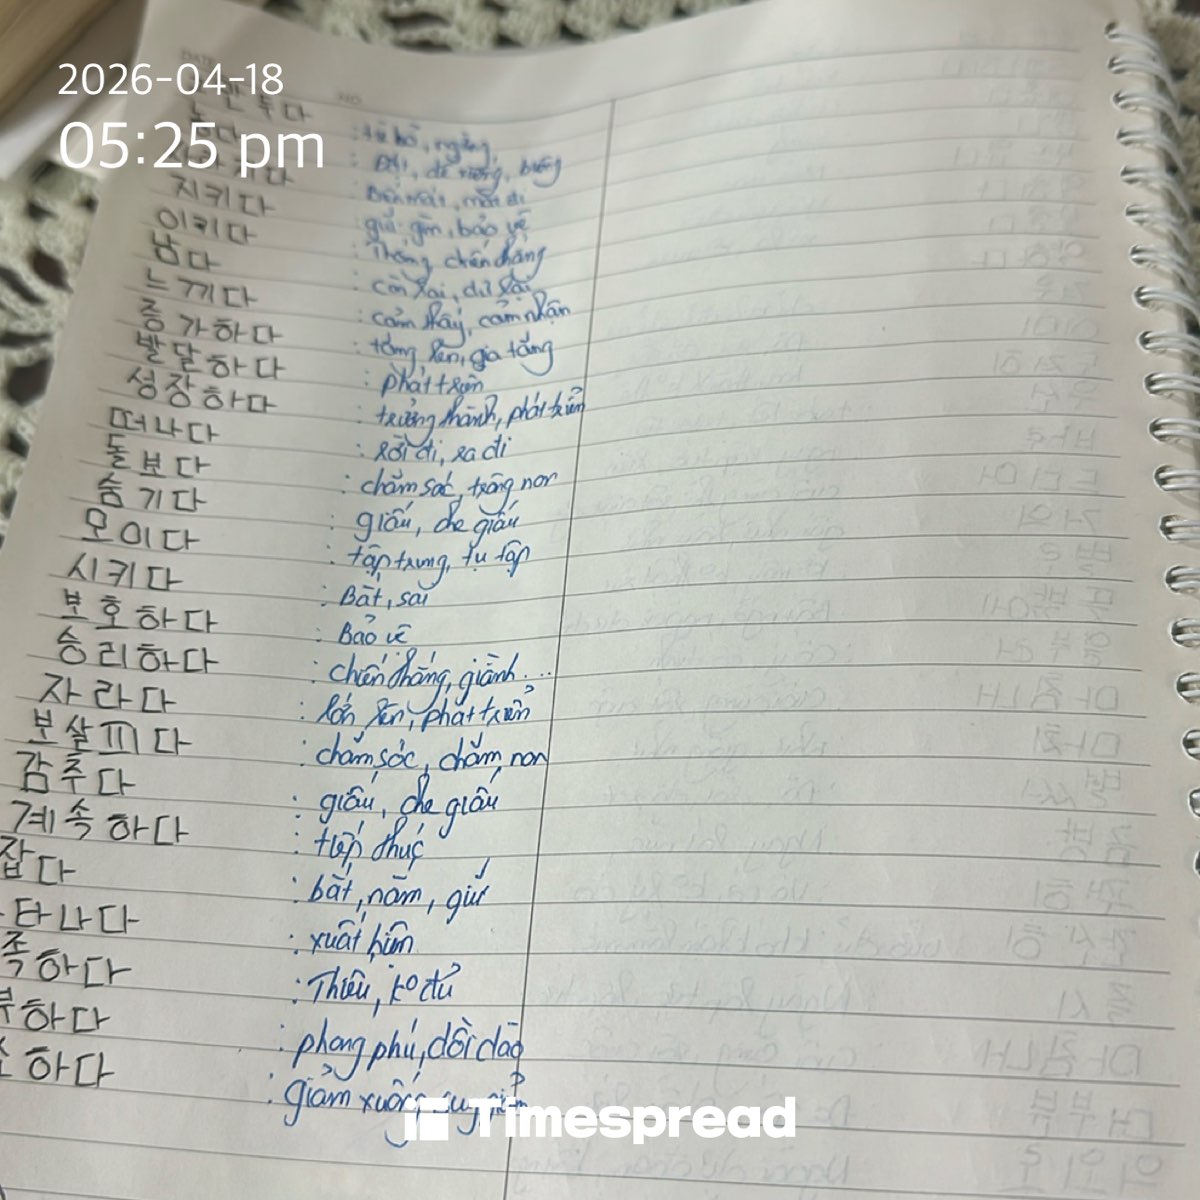 2026-04-18
05:25 pm
지키다 : giữ gìn, bảo vệ
이키다 : Thắng, chiến thắng
남다 : còn lại, dư lại
느끼다 : cảm thấy, cảm nhận
증가하다 : tăng lên, gia tăng
발달하다 : phát triển
성장하다 : trưởng thành, phát triển
떠나다 : rời đi, ra đi
돌보다 : chăm sóc, trông non
숨기다 : giấu, che giấu
모이다 : tập trung, tụ tập
시키다 : Bắt, sai
보호하다 : Bảo vệ
승리하다 : chiến thắng, giành...
자라다 : lớn lên, phát triển
보살피다 : chăm sóc, chăm non
감추다 : giấu, che giấu
계속하다 : tiếp thúc
잡다 : bắt, nắm, giữ
타나다 : xuất hiện
족하다 : Thiếu, ko đủ
부하다 : phong phú, dồi dào
하다 : giảm xuống,
Timespread